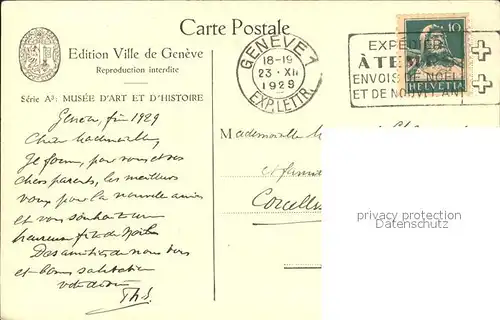 Carte Postale
Edition Ville de Genève
Reproduction interdite
Série A³: MUSÉE D'ART ET D'HISTOIRE
GENÈVE 1
18-19
23·XII
1929
EXP. LETTR.
EXPÉDIEZ
À TEMPS
ENVOIS DE NOËL
ET DE NOUVEL AN
10
HELVETIA
Genève, fin 1929
Chère Mademoiselle,
Je forme, pour vous et vos
chers parents, les meilleurs
vœux pour la nouvelle année
et vous souhaite une
heureuse fête de Noël.
Des amitiés de nous tous
et bonne salutation
votre
Th. S.
Mademoiselle
privacy protection
Datenschutz